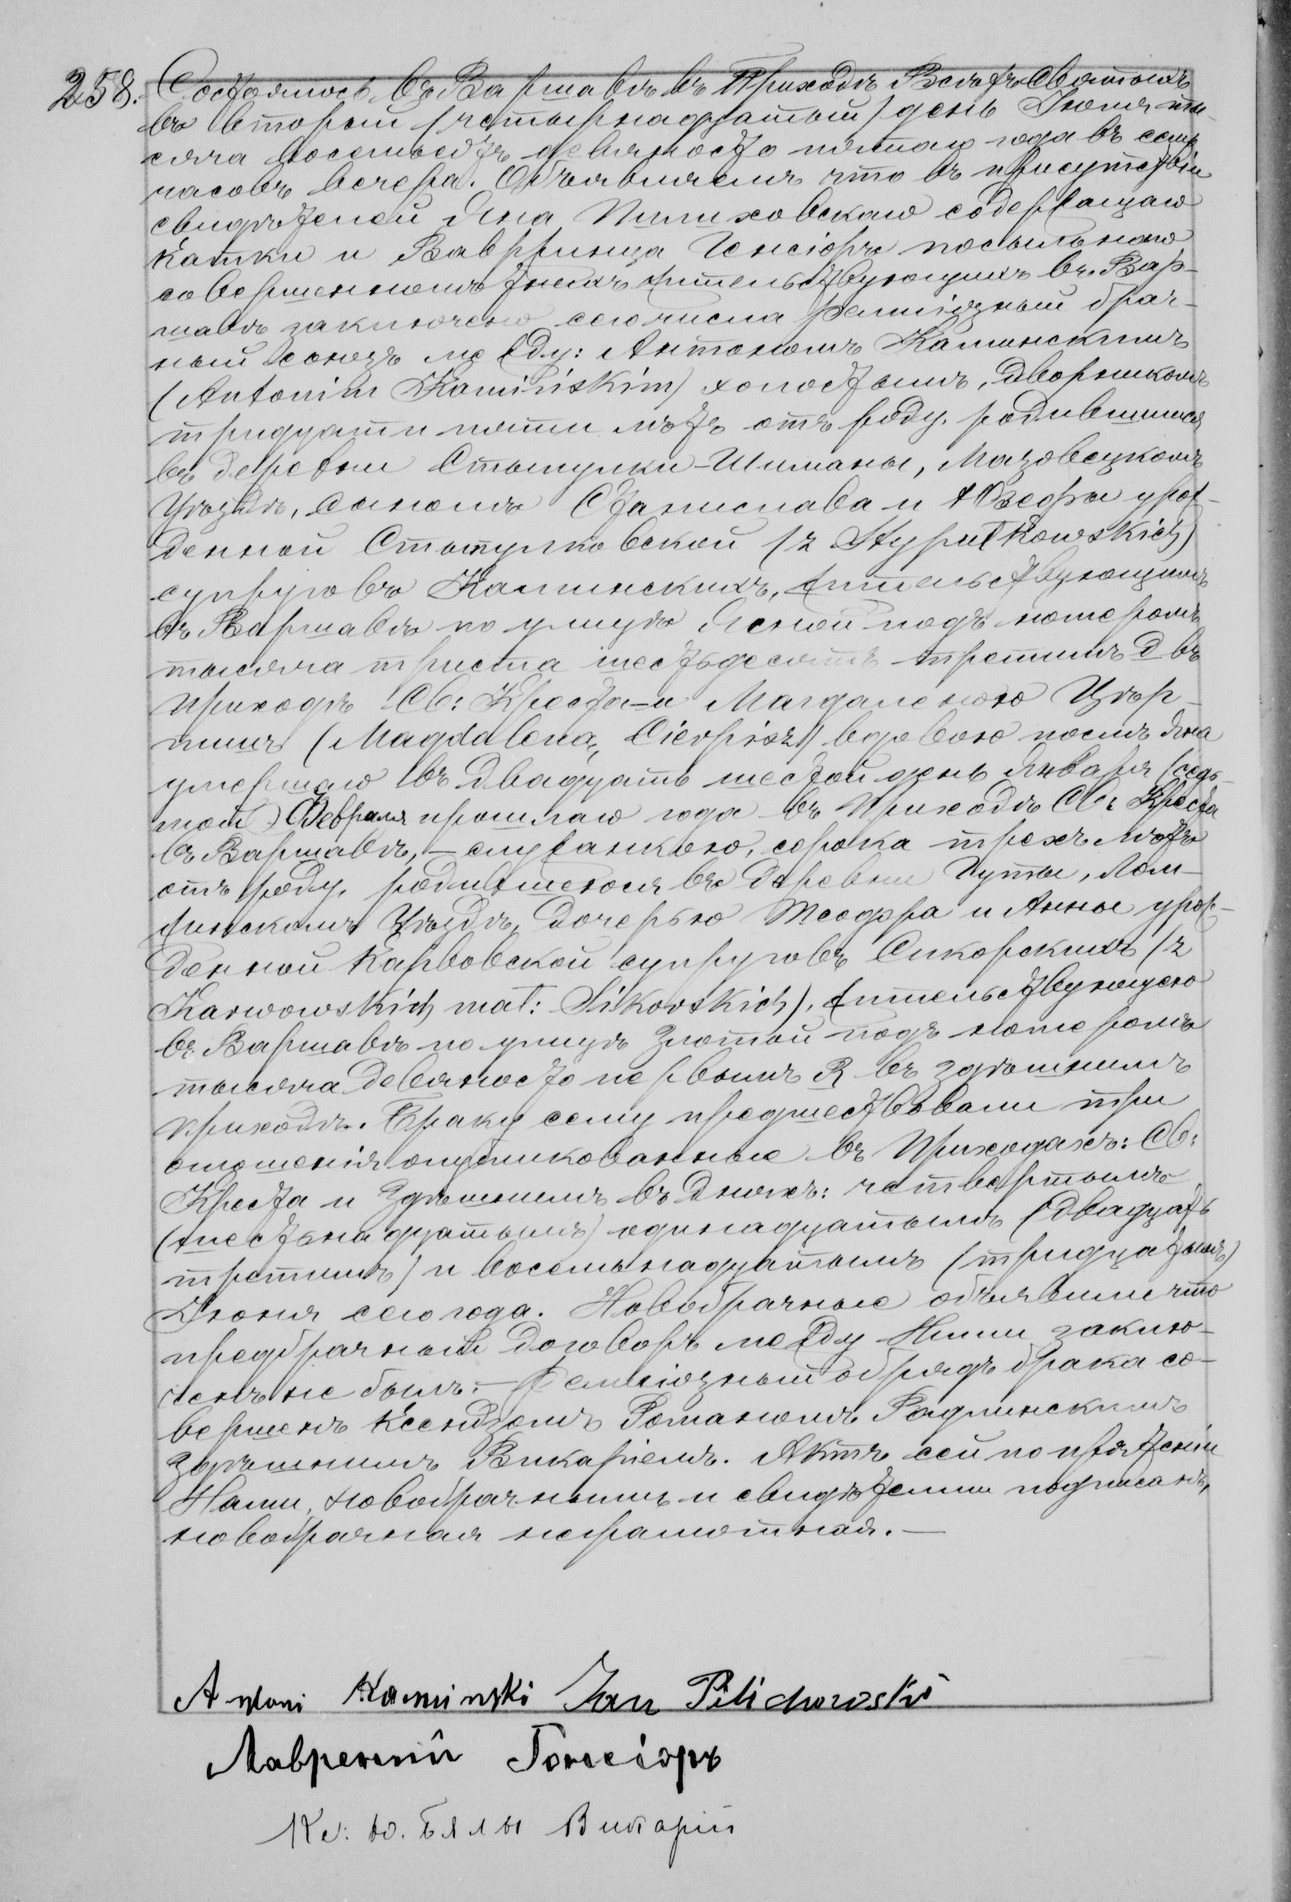 258. Состоялось въ Варшавѣ въ Приходѣ Всѣхъ Святыхъ
въ второй (четырнадцатый) день Іюля мѣ-
сяца тысяча восемьсотъ девяносто пятаго года въ семь
часовъ вечера. Объявляемъ что въ присутствіи
свидѣтелей Яна Пилиховскаго содержащаго
и Вавржинца Гонсіоръ посыльнаго
совершеннолѣтнихъ жительствующихъ въ Вар-
шавѣ заключено сего числа религіозный брач-
ный союзъ между: Антономъ Каминскимъ
(Antonim Kamińskim) холостымъ, дворникомъ
тридцати пяти лѣтъ отъ роду, родившимся
въ деревни Стыпулки-Шиманы, Мазовецкомъ
Уѣздѣ, сыномъ Станислава и Ѳеофры урож-
денной Стыпулковской (z Stypułkowskich)
супруговъ Каминскихъ, жительствующимъ
въ Варшавѣ по улицѣ Ясной подъ номеромъ
тысяча триста шестьдесятъ третимъ D въ
Приходѣ Св: Креста – и Магдаленою Цѣр-
пишъ (Magdaleną Cierpisz) вдовою послѣ Яна
умершаго въ двадцать шестой день Января (седь-
мой) Февраля прошлаго года въ Приходѣ Св: Креста
въ Варшавѣ, – служанкою, сорока трехъ лѣтъ
отъ роду, родившеюся въ деревни Чуты, Лом-
жинскомъ Уѣздѣ, дочерью Теофра и Анны урож-
денной Карвовской супруговъ Сикорскихъ (z
Karwowskich mał: Sikorskich), жительствующею
въ Варшавѣ по улицѣ Злотой подъ номеромъ
тысяча девяносто первымъ R въ здѣшнимъ
приходѣ. Браку сему предшествовали три
оглошенія опубликованные въ Приходахъ: Св:
Креста и Здѣшнемъ въ дняхъ: четвертымъ
(шестьнадцатымъ) одинадцатымъ (двадцать
третимъ) и восемьнадцатымъ (тридцатымъ)
Іюня сего года. Новобрачные объявили что
предбрачный договоръ между Ними заклю-
ченъ не былъ. – Религіозный обрядъ брака со-
вершенъ Ксендзомъ Романомъ Радлинскимъ
Здѣшнимъ Викаріемъ. Актъ сей по прочтеніи
Нами, новобрачнымъ и свидѣтелми подписанъ,
новобрачная неграмотная. –
Antoni Kaminski Jan Pilichowski
Лаврентій Гонсіоръ
Кс: Ю. Бялы Викарій